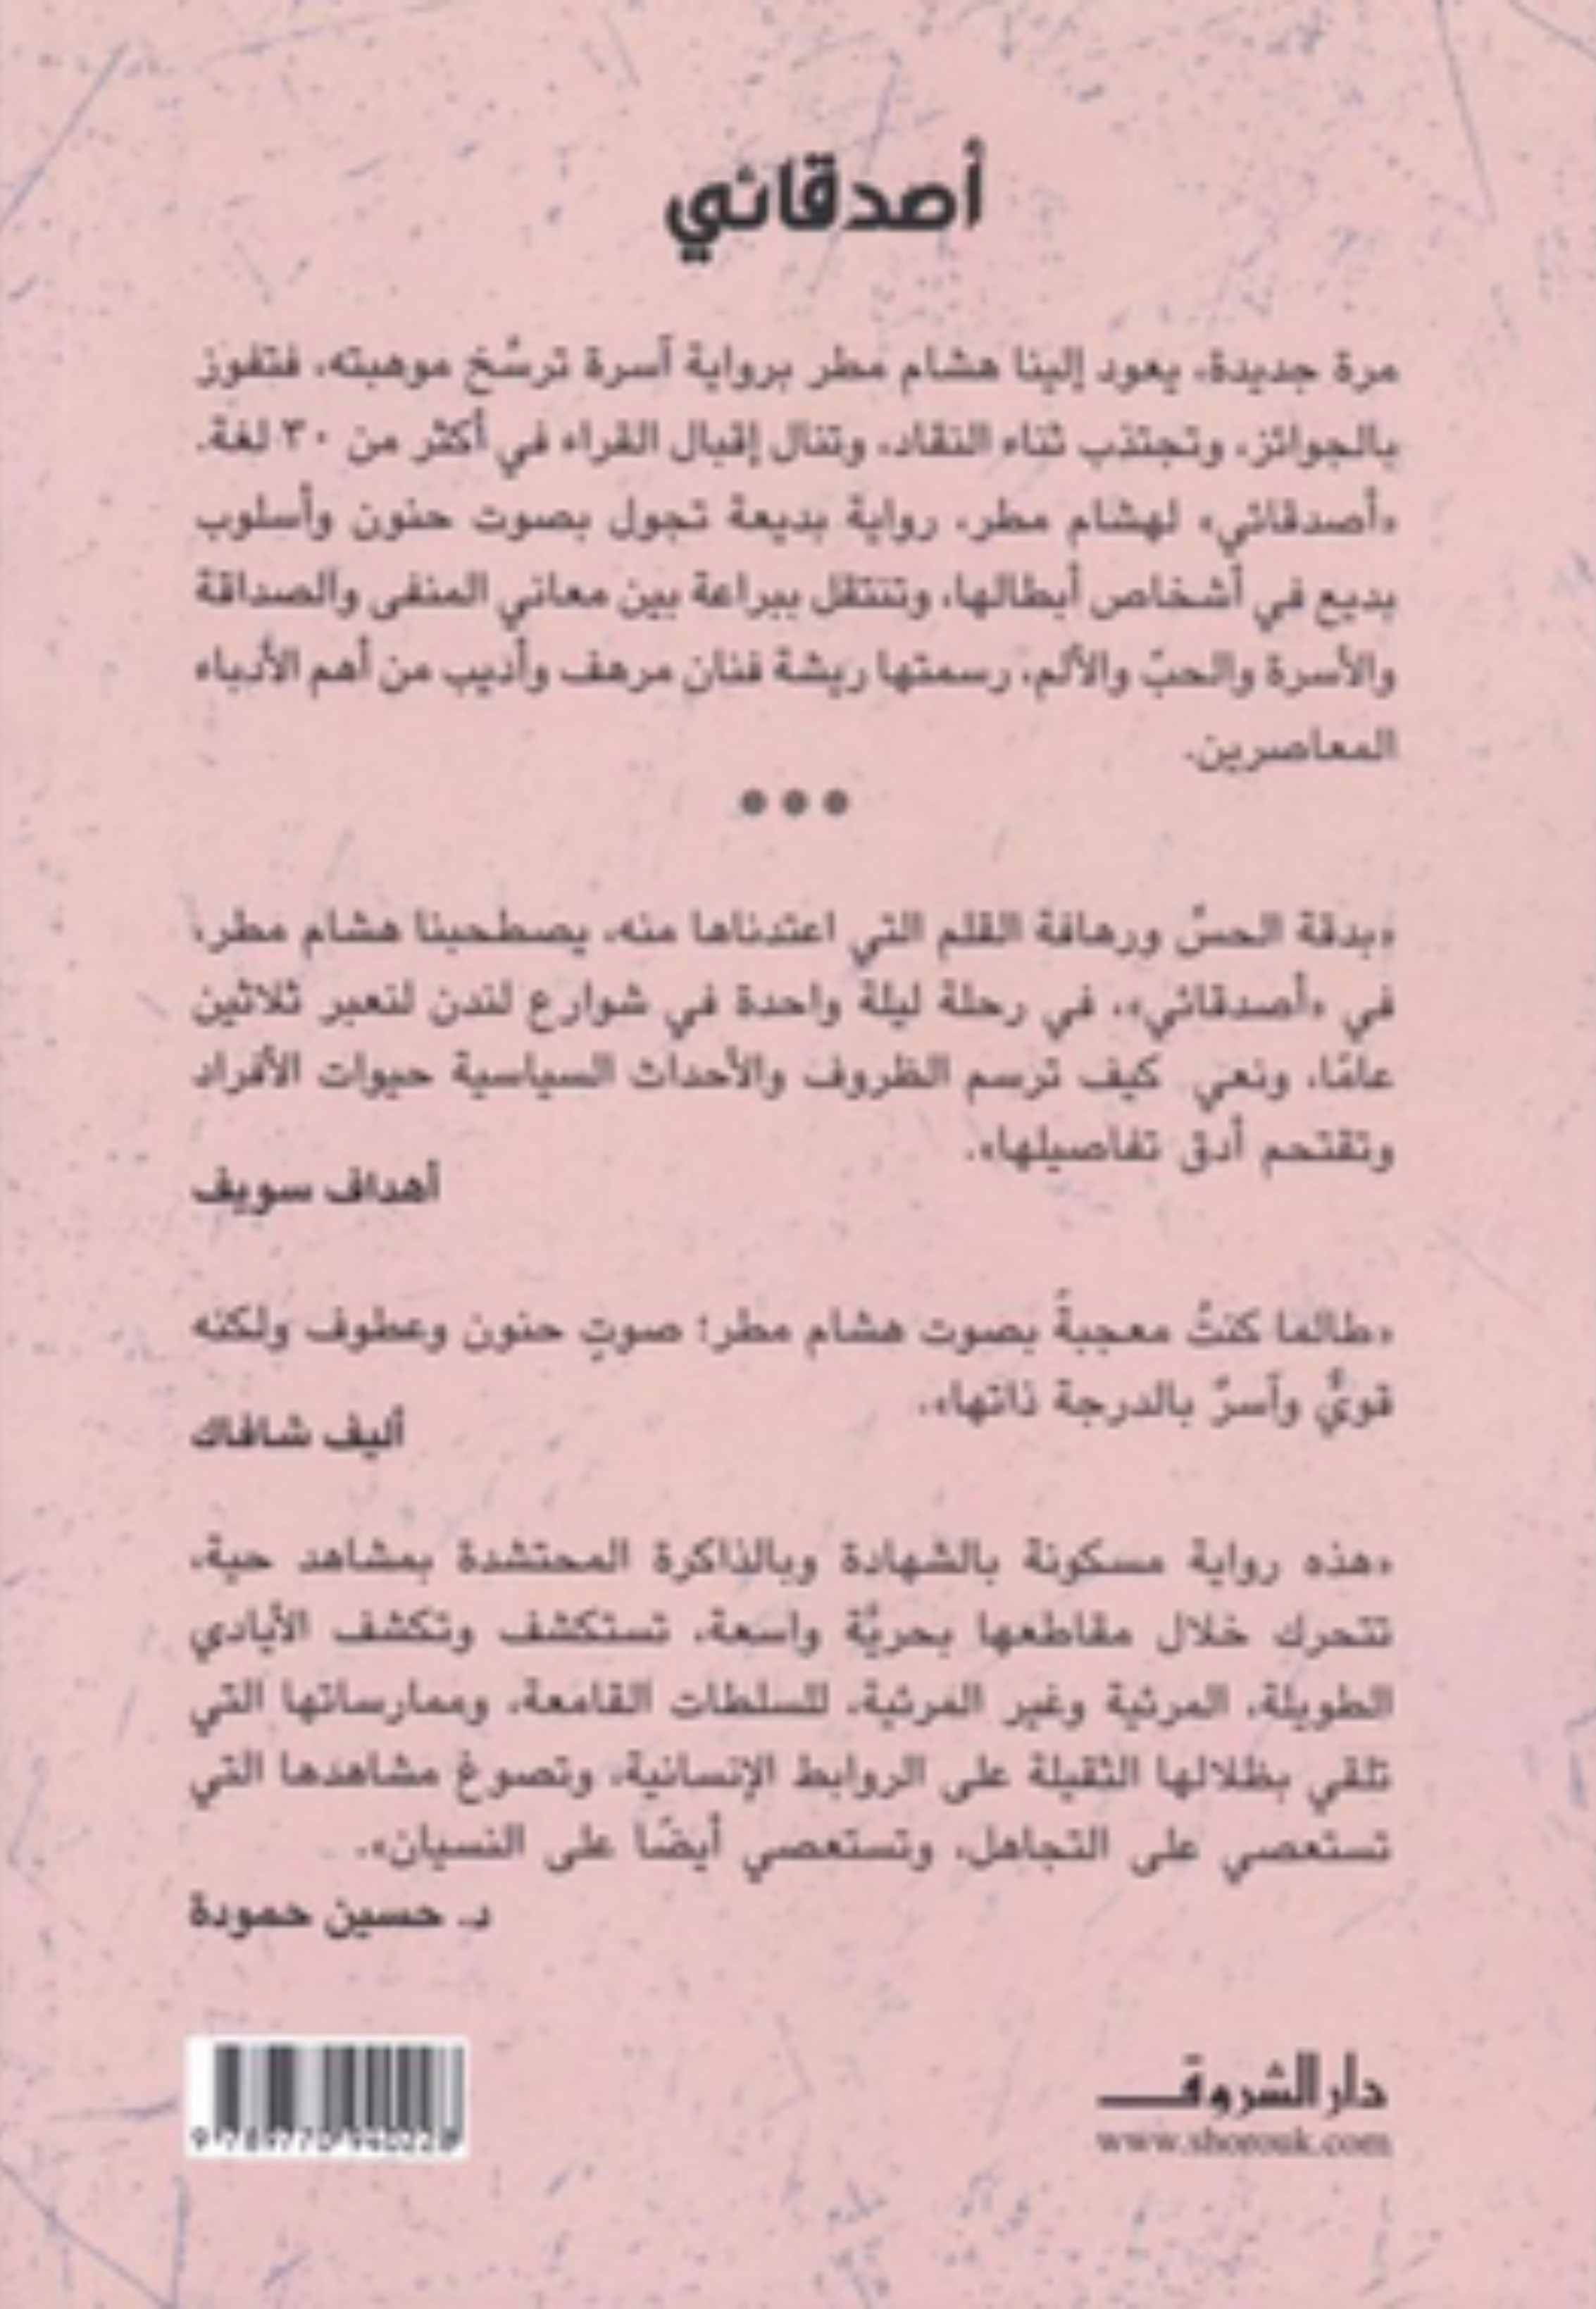 أصدقائي
مرة جديدة، يعود إلينا هشام مطر برواية آسرة ترسَّخ موهبته، فتفوز
بالجوائز، وتجتذب ثناء النقاد، وتنال إقبال القراء في أكثر من ٣٠ لغة.
«أصدقائي» لهشام مطر، رواية بديعة تجول بصوت حنون وأسلوب
بديع في أشخاص أبطالها، وتنتقل ببراعة بين معاني المنفى والصداقة
والأسرة والحبّ والألم، رسمتها ريشة فنان مرهف وأديب من أهم الأدباء
المعاصرين.
•••
«بدقة الحسِّ ورهافة القلم التي اعتدناها منه، يصطحبنا هشام مطر،
في «أصدقائي»، في رحلة ليلة واحدة في شوارع لندن لنعبر ثلاثين
عامًا، ونعي كيف ترسم الظروف والأحداث السياسية حيوات الأفراد
وتقتحم أدق تفاصيلها».
أهداف سويف
«طالما كنتُ معجبةً بصوت هشام مطر؛ صوتٍ حنون وعطوف ولكنه
قويٌّ وآسرٌ بالدرجة ذاتها».
أليف شافاك
«هذه رواية مسكونة بالشهادة وبالذاكرة المحتشدة بمشاهد حية،
تتحرك خلال مقاطعها بحريَّة واسعة، تستكشف وتكشف الأيادي
الطويلة، المرئية وغير المرئية، للسلطات القامعة، وممارساتها التي
تلقي بظلالها الثقيلة على الروابط الإنسانية، وتصوغ مشاهدها التي
تستعصي على التجاهل، وتستعصي أيضًا على النسيان».
د. حسين حمودة
دار الشروق
www.shorouk.com
9 789770 940228